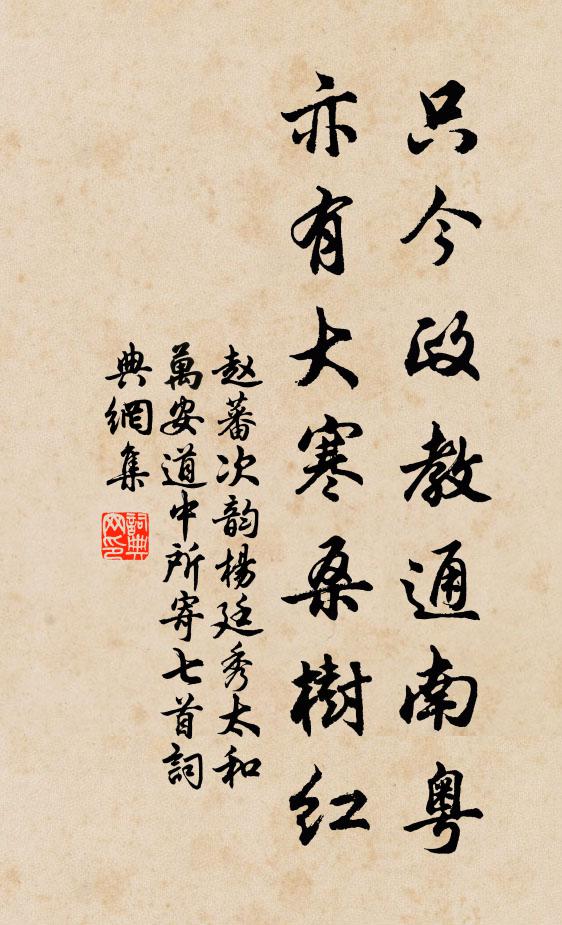 只今政教通南粤
亦有大寒桑樹红
赵蕃次韵楊廷秀太和
萬安道中所寄七首詞
典網集
詞典网印